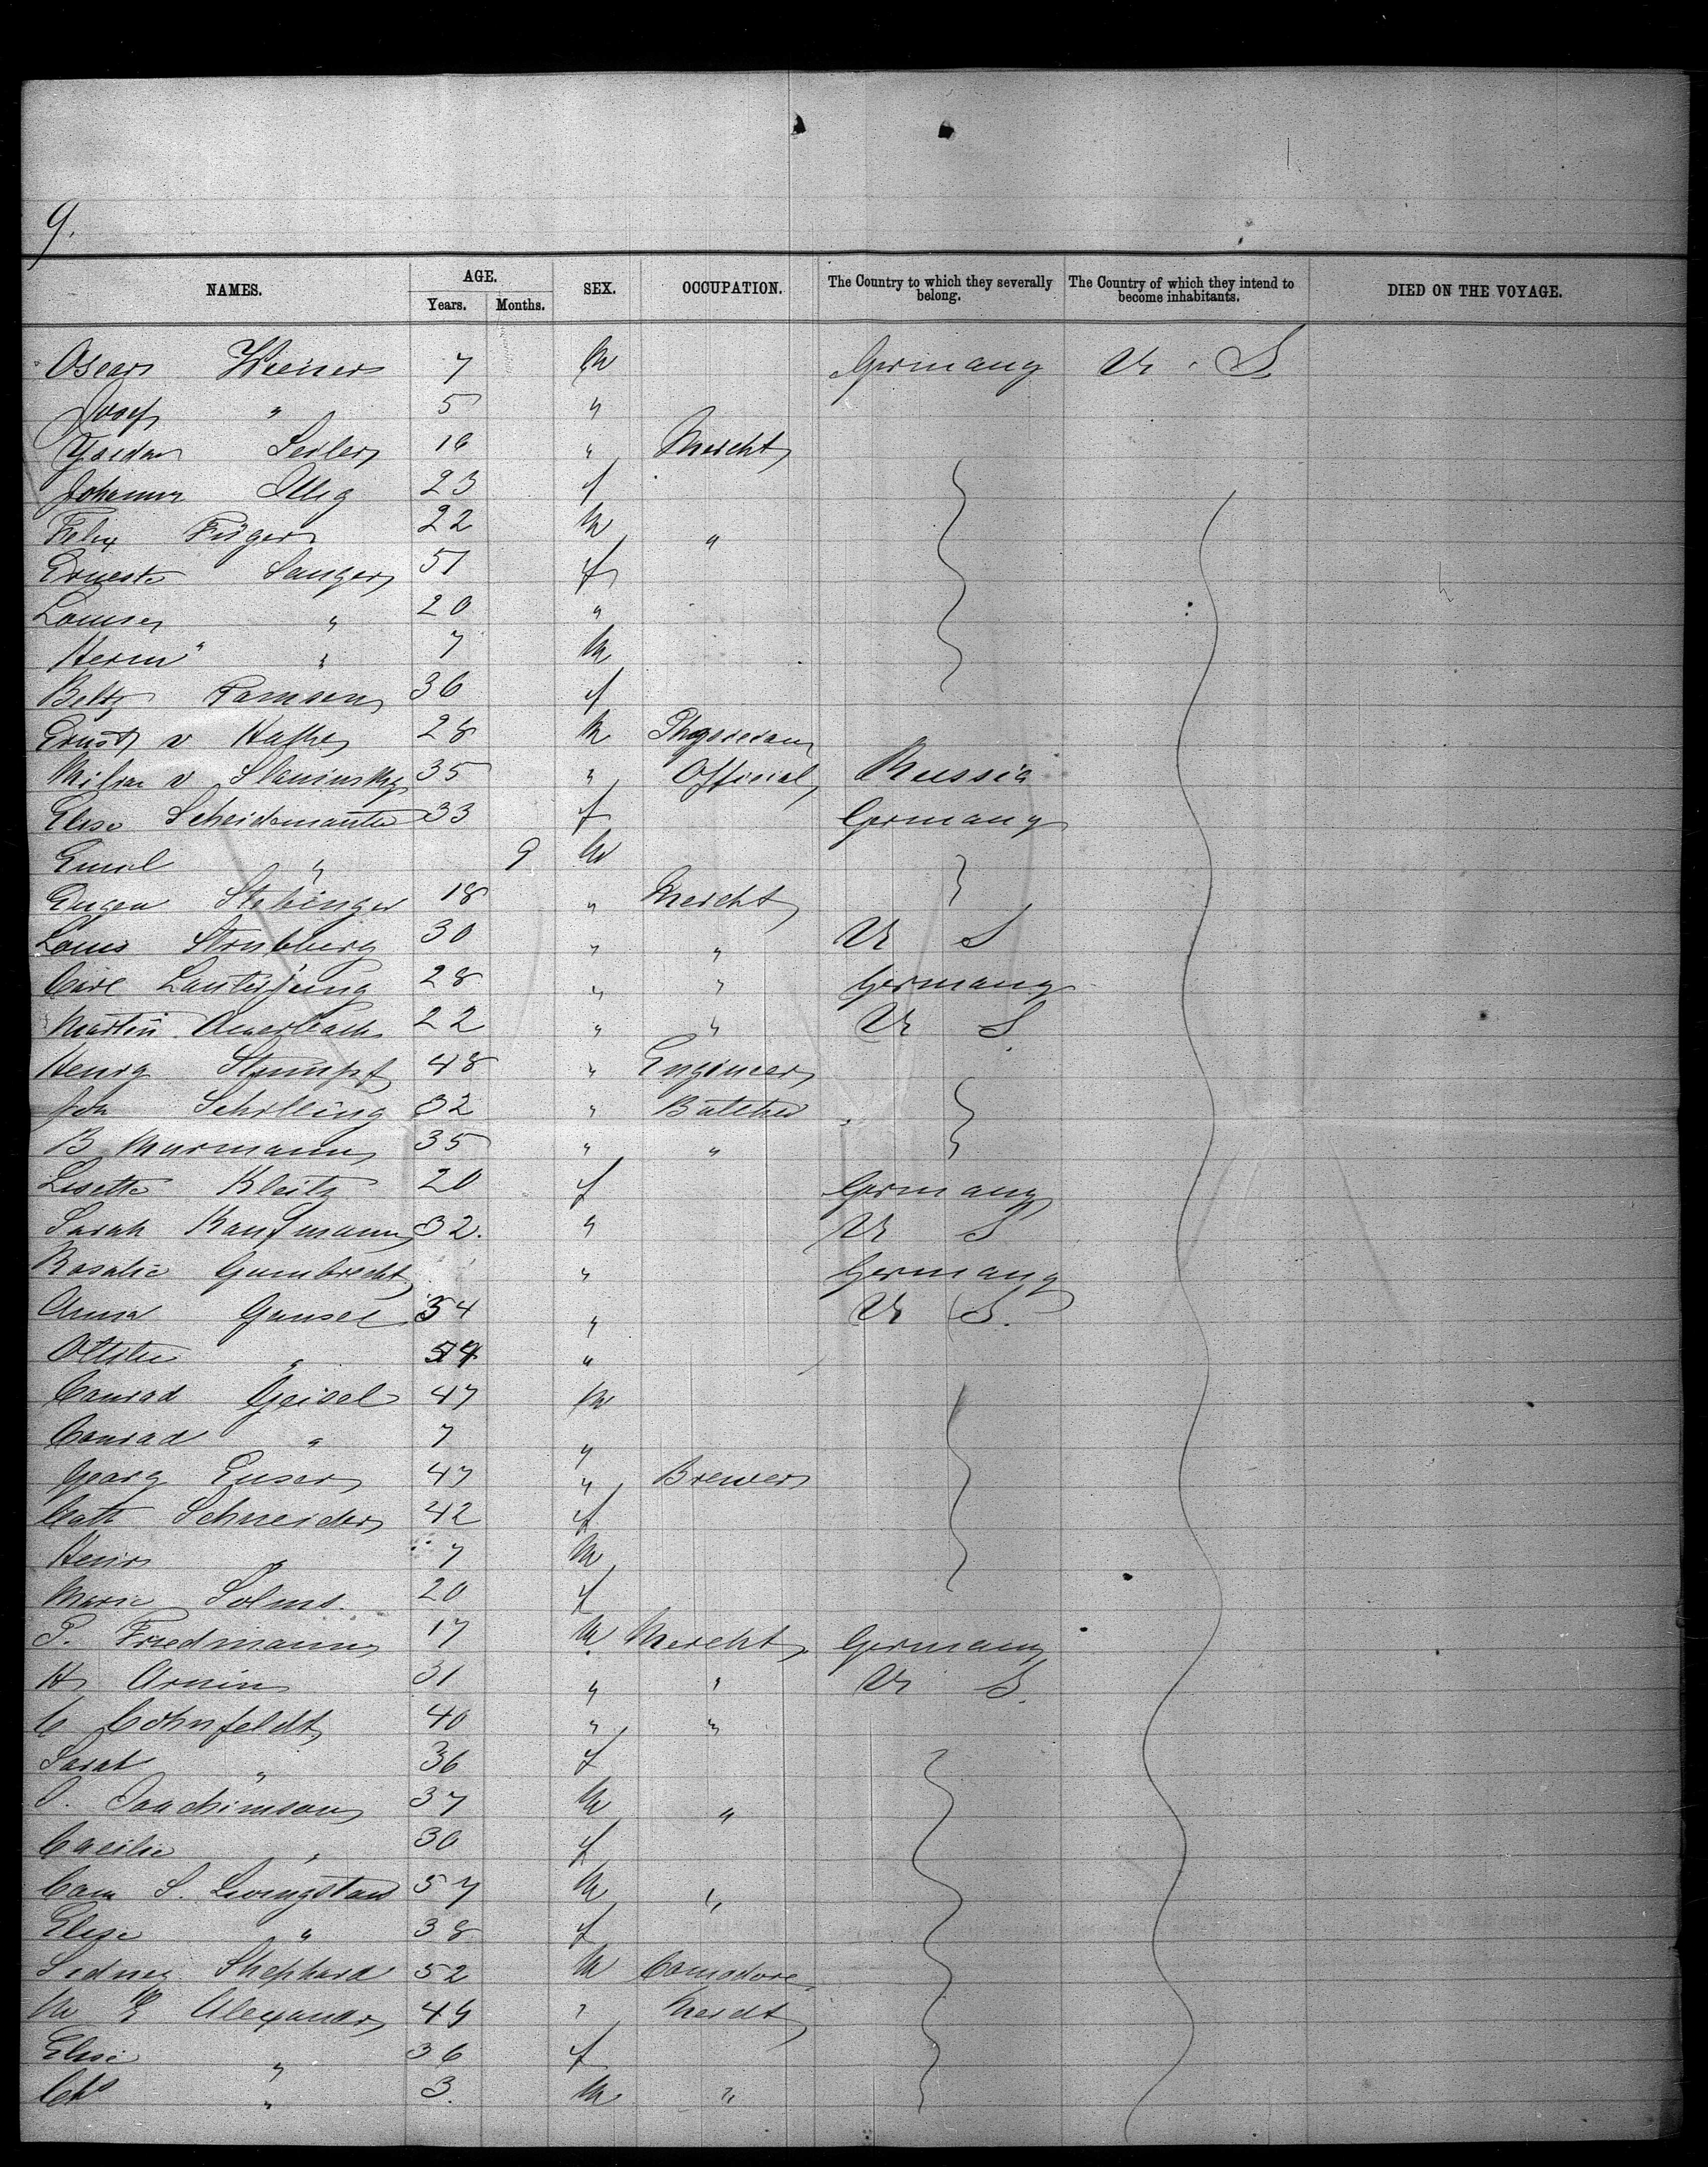 9.
NAMES. AGE. SEX. OCCUPATION. The Country to which they severally belong. The Country of which they intend to become inhabitants. DIED ON THE VOYAGE.
Years. Months.
Oscar Wiener 7 M Germany U. S.
Josef " 5 "
Seiler 16 " Mercht
Johanna Illig 23 f
Felix Füger 22 M "
Erneste Sanger 51 f
Louise " 20 "
Herm " 7 M
Betty Ramsen 36 f
Ernst v 28 M Physician
v Slavinsky 35 " Official Russia
Elise Scheidemantel 33 f Germany
Emil " 9 M
Eugen Stebinger 18 " Mercht
Louis Strubberg 30 " " U S
Carl Lauterjung 28 " " Germany
Martin Auerbach 22 " " U S.
Henry Stumpf 48 " Engineer
Joh Schilling 32 " Butcher
B Murmann 35 " "
Lisette Kleitz 20 f Germany
Sarah Kaufmann 32. " U S
Rosalie Gumbrecht " Germany
Anna Gansel 54 " U S.
Ottilie " "
Conrad Geisel 47 M
Conrad " 7 "
Georg Enser 47 " Brewer
Cath Schneider 42 f
Heinr " 7 M
Marie Solms. 20 f
P. Friedmann 17 M Mercht Germany
H Arnim 31 " " U S.
C Cohnfeldt 40 " "
Sarah " 36 f
Joachimson 37 M "
Cacilie " 30 f
Cam S. Livingstan 57 M "
Elise " 38 f
Sidney Shephard 52 M Comodore
M E Alexander 49 " Mercht
Elise " 36 f
Chs " 3. M "